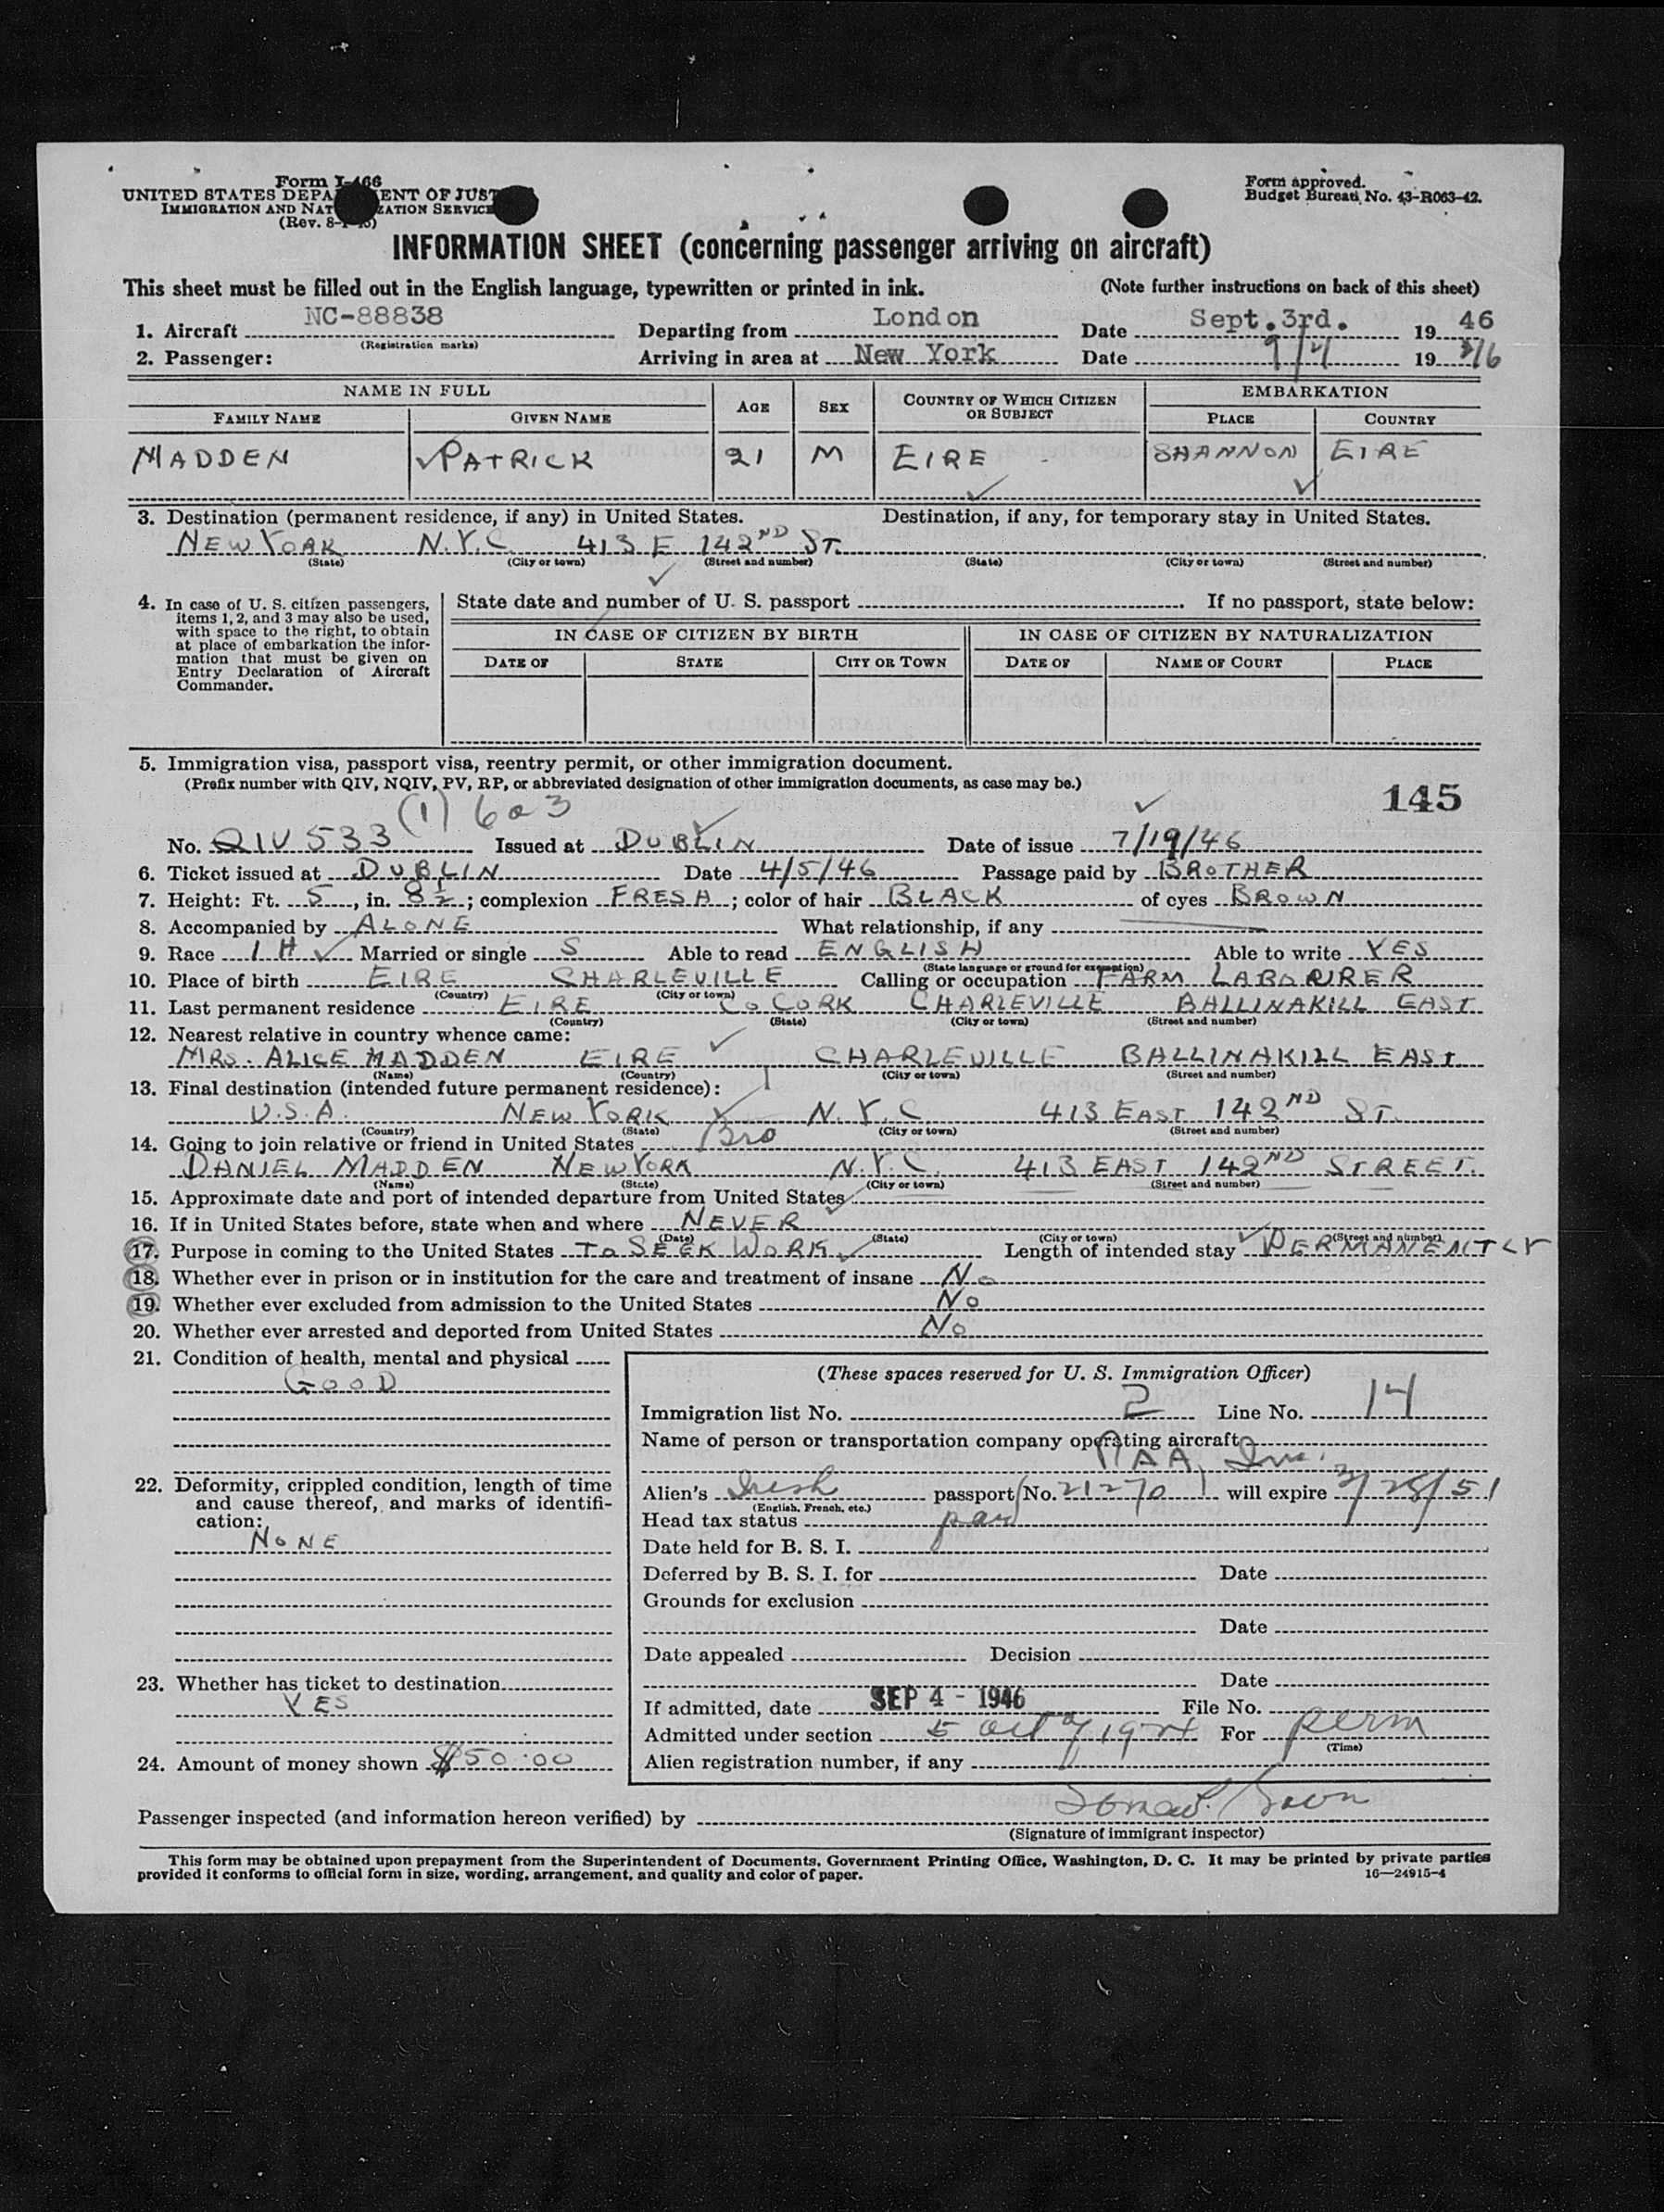 Form I-466
UNITED STATES DEPA ENT OF JUST
IMMIGRATION AND NAT ZATION SERVICE
(Rev. 8-
Form approved.
Budget Bureau No. 43-R063-42.
INFORMATION SHEET (concerning passenger arriving on aircraft)
This sheet must be filled out in the English language, typewritten or printed in ink. (Note further instructions on back of this sheet)
1. Aircraft NC-88838 Departing from London Date Sept. 3rd. 19 46
(Registration marks)
2. Passenger: Arriving in area at New York Date 9/4 19 46
NAME IN FULL AGE SEX COUNTRY OF WHICH CITIZEN OR SUBJECT EMBARKATION
FAMILY NAME GIVEN NAME PLACE COUNTRY
MADDEN PATRICK 21 M EIRE SHANNON EIRE
3. Destination (permanent residence, if any) in United States. Destination, if any, for temporary stay in United States.
NEW YORK N.Y.C. 413 E 142ND ST.
(State) (City or town) (Street and number) (State) (City or town) (Street and number)
4. In case of U. S. citizen passengers, items 1, 2, and 3 may also be used, with space to the right, to obtain at place of embarkation the information that must be given on Entry Declaration of Aircraft Commander.
State date and number of U. S. passport If no passport, state below:
IN CASE OF CITIZEN BY BIRTH IN CASE OF CITIZEN BY NATURALIZATION
DATE OF STATE CITY OR TOWN DATE OF NAME OF COURT PLACE
5. Immigration visa, passport visa, reentry permit, or other immigration document.
(Prefix number with QIV, NQIV, PV, RP, or abbreviated designation of other immigration documents, as case may be.)
145
(1) 6a3
No. QIV 533 Issued at DUBLIN Date of issue 7/19/46
6. Ticket issued at DUBLIN Date 4/5/46 Passage paid by BROTHER
7. Height: Ft. 5, in. 8½; complexion FRESH; color of hair BLACK of eyes BROWN
8. Accompanied by ALONE What relationship, if any
9. Race IH Married or single S Able to read ENGLISH Able to write YES
(State language or ground for exemption)
10. Place of birth EIRE CHARLEVILLE Calling or occupation FARM LABOURER
(Country) (City or town)
11. Last permanent residence EIRE Co CORK CHARLEVILLE BALLINAKILL EAST
(Country) (State) (City or town) (Street and number)
12. Nearest relative in country whence came:
MRS. ALICE MADDEN EIRE CHARLEVILLE BALLINAKILL EAST
(Name) (Country) (City or town) (Street and number)
13. Final destination (intended future permanent residence):
U.S.A. NEW YORK N.Y.C. 413 EAST 142ND ST.
(Country) (State) (City or town) (Street and number)
14. Going to join relative or friend in United States Bro
DANIEL MADDEN NEW YORK N.Y.C. 413 EAST 142ND STREET.
(Name) (State) (City or town) (Street and number)
15. Approximate date and port of intended departure from United States
16. If in United States before, state when and where NEVER
(Date) (State) (City or town) (Street and number)
17. Purpose in coming to the United States TO SEEK WORK Length of intended stay PERMANENTLY
18. Whether ever in prison or in institution for the care and treatment of insane No
19. Whether ever excluded from admission to the United States No
20. Whether ever arrested and deported from United States No
21. Condition of health, mental and physical
GOOD
(These spaces reserved for U. S. Immigration Officer)
Immigration list No. 2 Line No. 14
Name of person or transportation company operating aircraft
PAA, Inc.
22. Deformity, crippled condition, length of time and cause thereof, and marks of identification:
NONE
Alien's Irish passport No. 21270 will expire 3/28/51
(English, French, etc.)
Head tax status
Date held for B. S. I.
Deferred by B. S. I. for Date
Grounds for exclusion
Date
Date appealed Decision
23. Whether has ticket to destination
YES
Date
If admitted, date SEP 4 - 1946 File No.
Admitted under section 5 act of 1924 For perm
(Time)
24. Amount of money shown $50.00
Alien registration number, if any
Passenger inspected (and information hereon verified) by
(Signature of immigrant inspector)
This form may be obtained upon prepayment from the Superintendent of Documents, Government Printing Office, Washington, D. C. It may be printed by private parties
provided it conforms to official form in size, wording, arrangement, and quality and color of paper. 16—24915-4